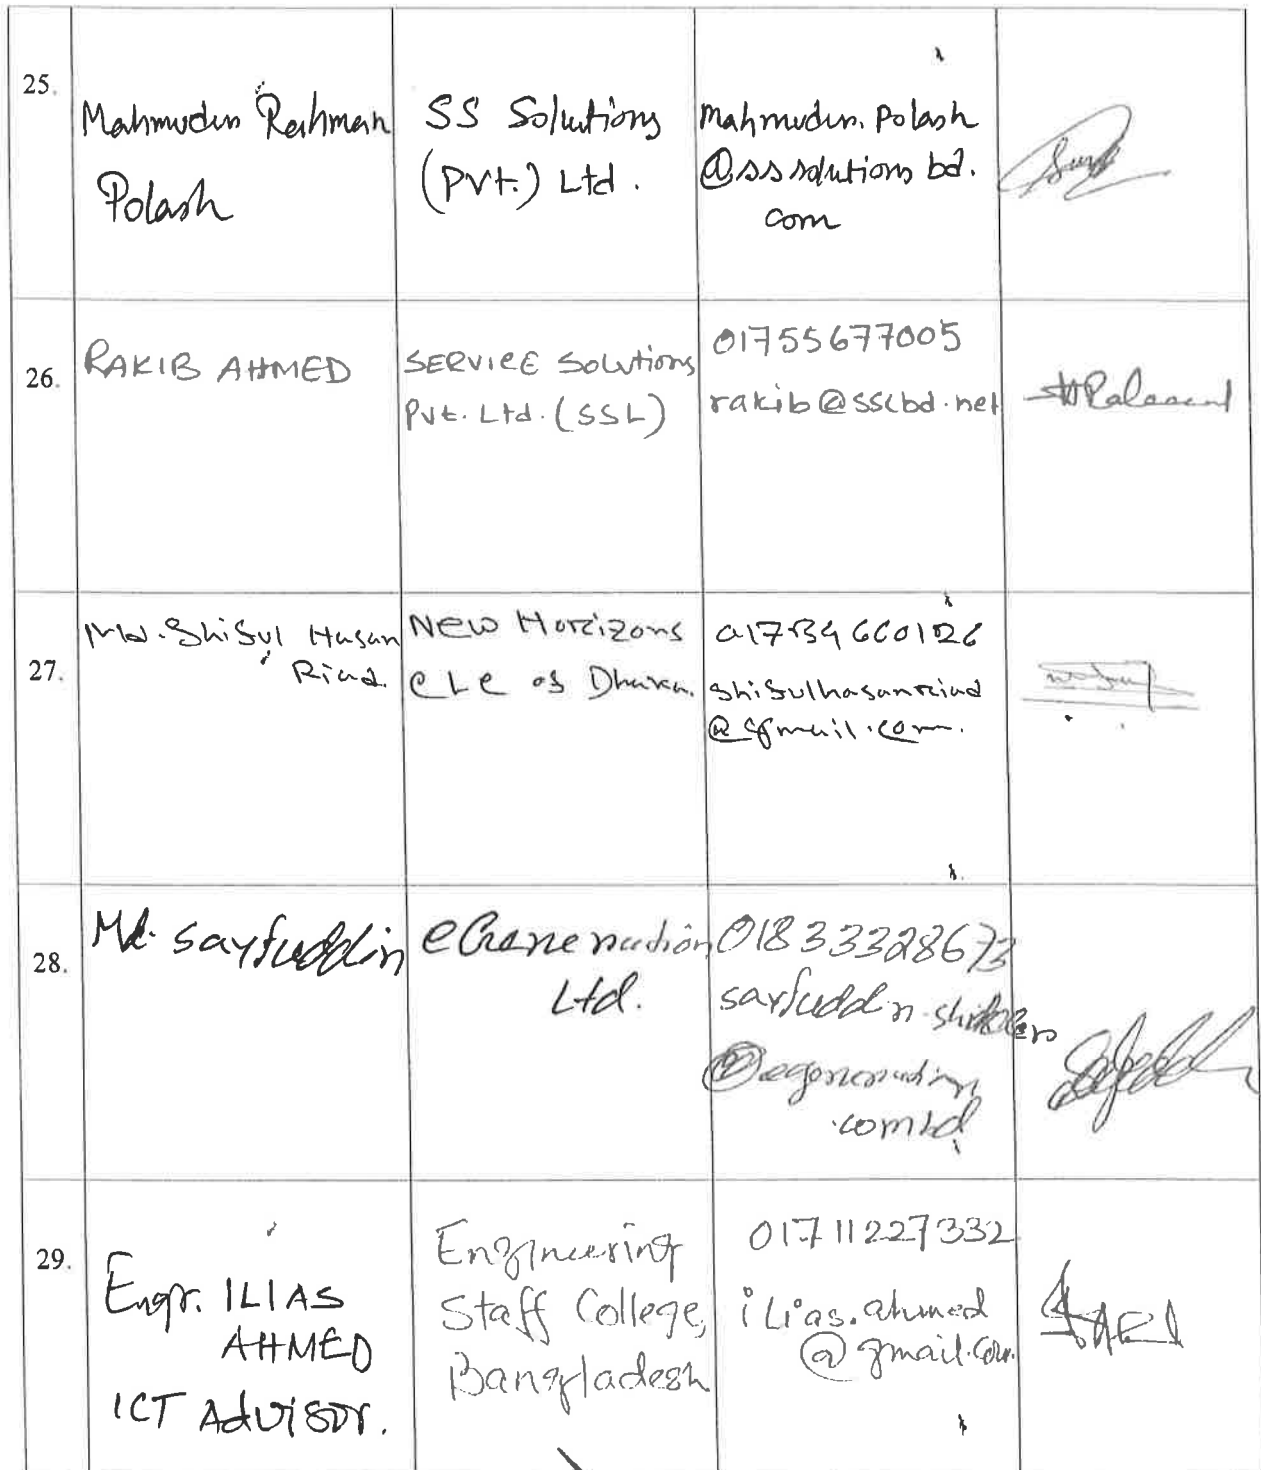 25.
Mahmudun Rahman
Polash
SS Solutions
(Pvt.) Ltd.
Mahmudun.Polash
@sssolutionsbd.
com
26.
RAKIB AHMED
SERVICE Solutions
Pvt. Ltd. (SSL)
01755677005
rakib@sslbd.net
27.
Md. Shiful Hasan
Riad.
New Horizons
CLC of Dhaka.
shifulhasanriad
@gmail.com.
28.
Md. Sayfuddin
eGeneration
Ltd.
01833328673
@egeneration
.com.bd
29.
Engr. ILIAS
AHMED
ICT Advisor.
Engineering
Staff College,
Bangladesh
01711227332
ilias.ahmed
@gmail.com.